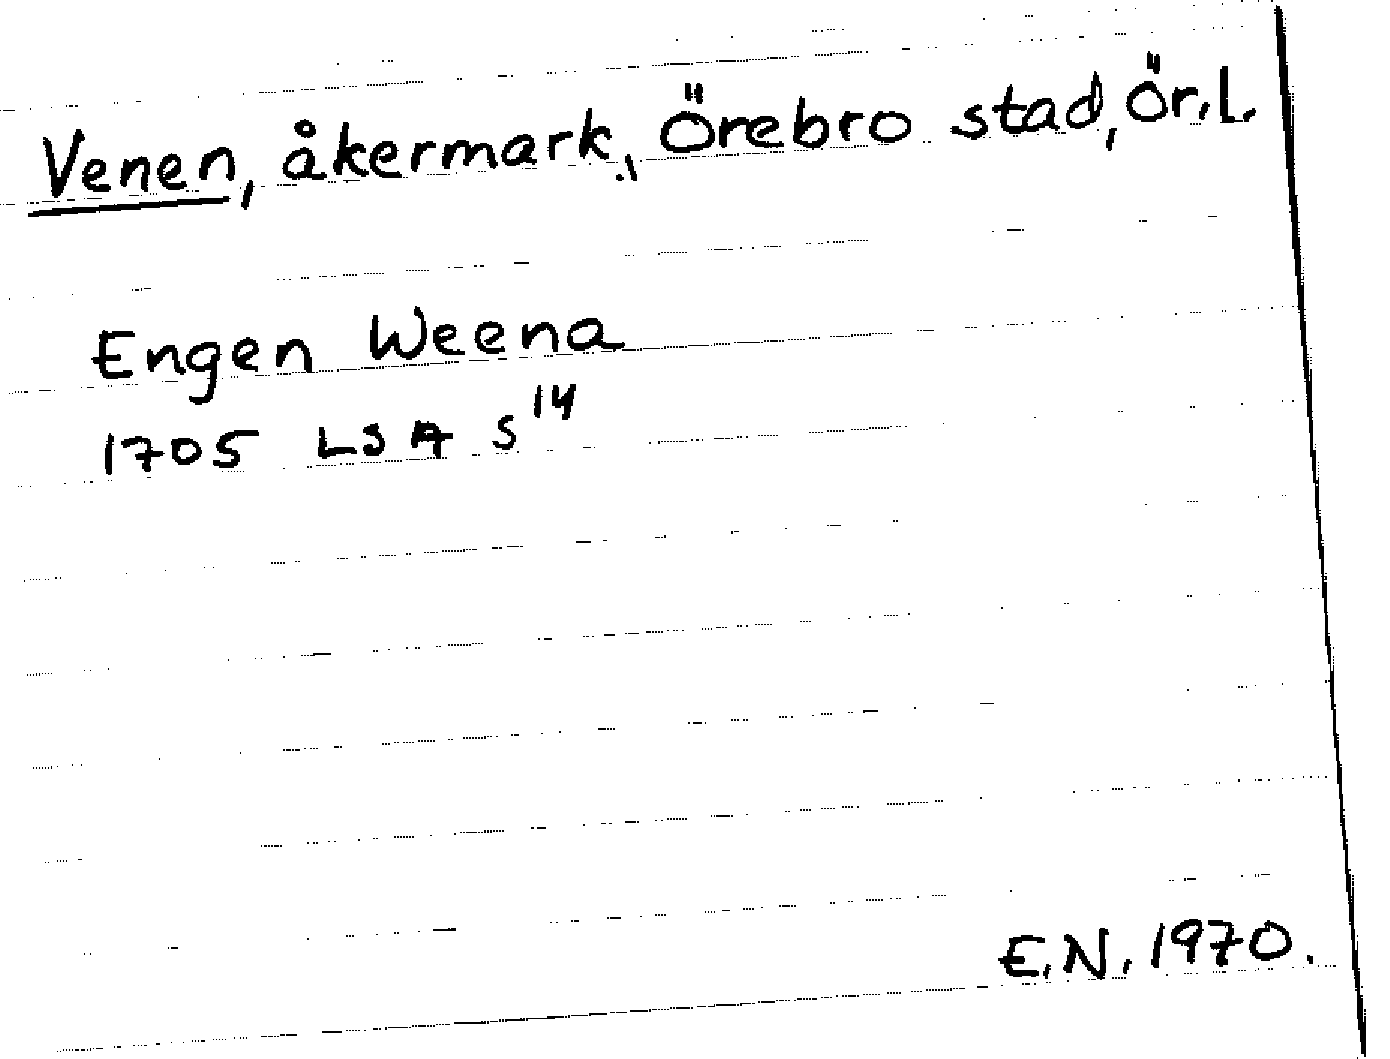 Venen, åkermark., Örebro stad, Ör.l.
Engen Weena
1705 LSA S¹⁴
E.N. 1970.